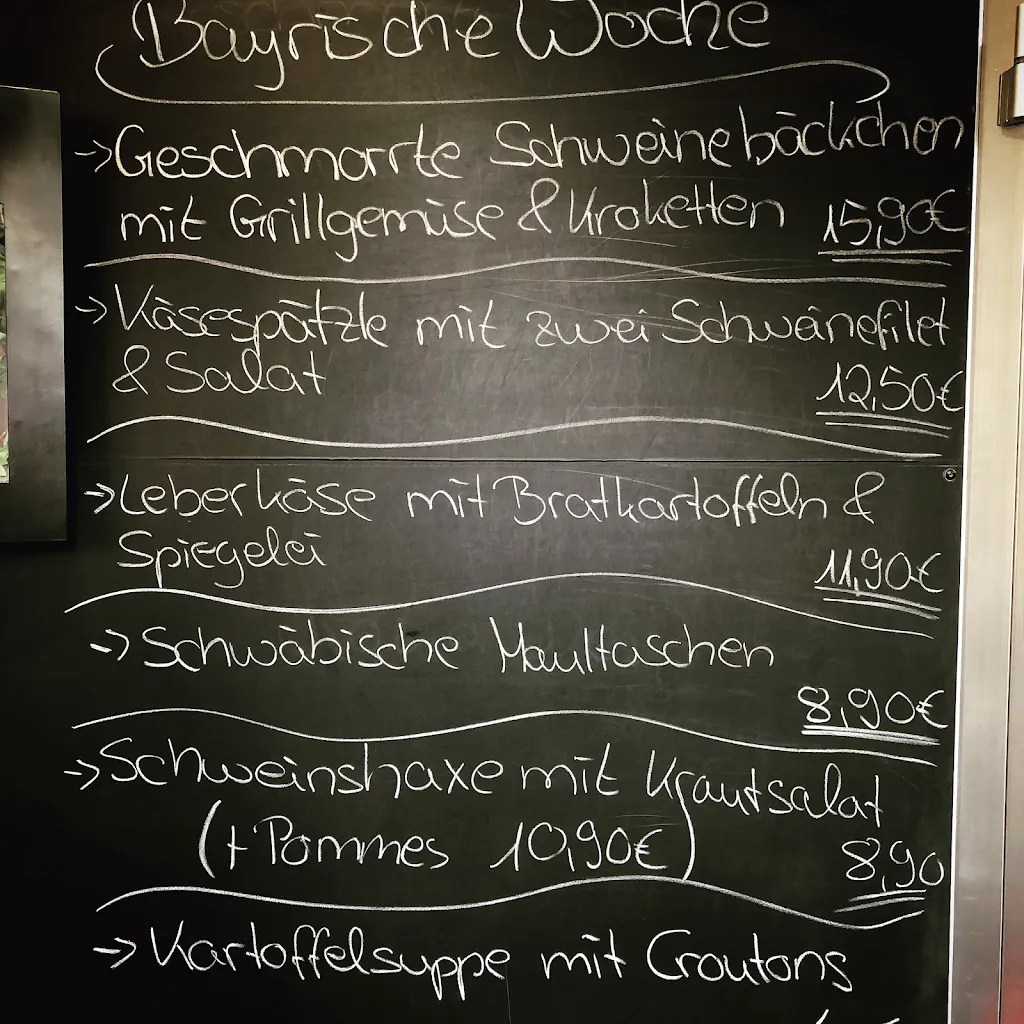 Bayrische Woche
-> Geschmorrte Schweinebäckchen
mit Grillgemüse & Kroketten 15,90€
-> Käsespätzle mit zwei Schweinefilet
& Salat 12,50€
-> Leberkäse mit Bratkartoffeln &
Spiegelei 11,90€
-> Schwäbische Maultaschen
8,90€
-> Schweinshaxe mit Krautsalat
(+ Pommes 10,90€) 8,90
-> Kartoffelsuppe mit Croutons